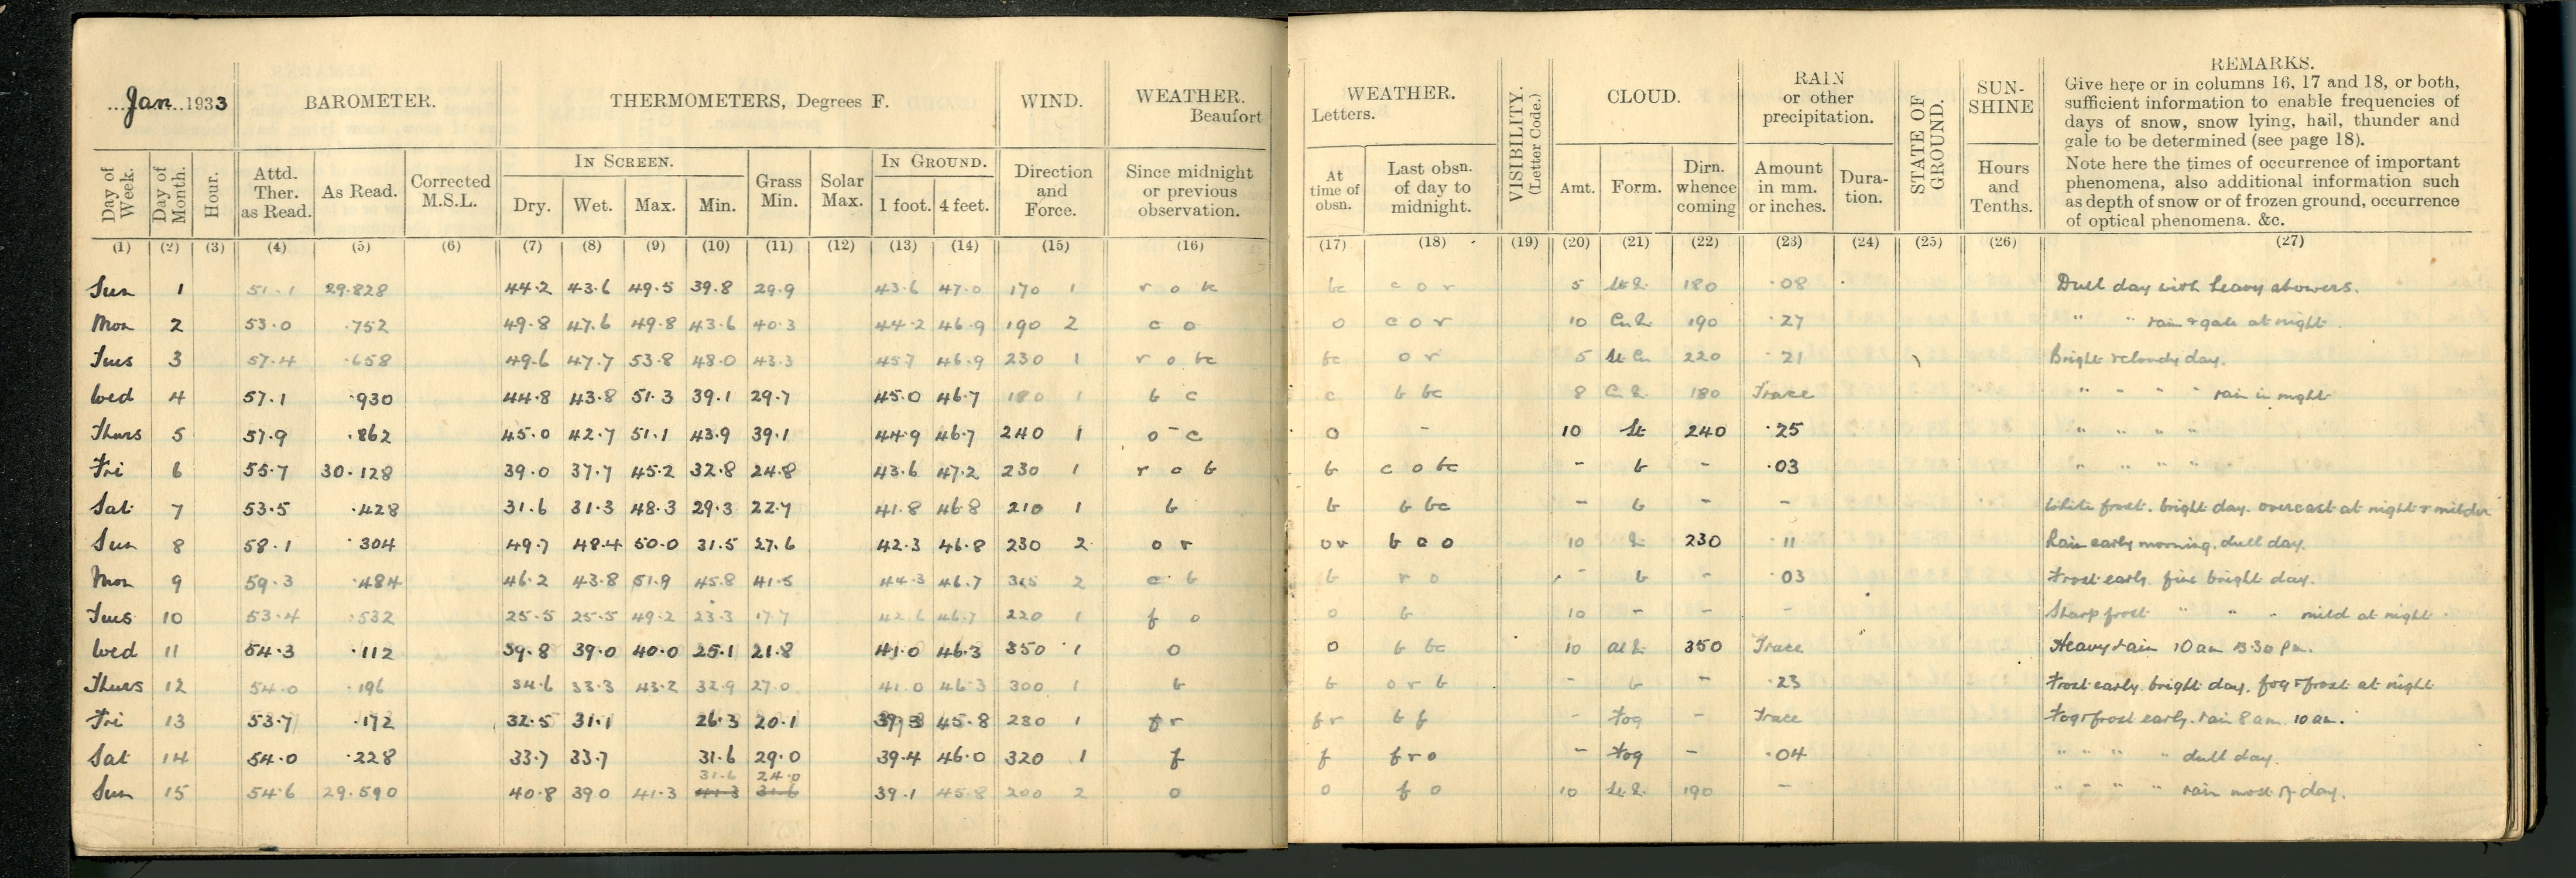 Jan 1933 BAROMETER. THERMOMETERS, Degrees F. WIND. WEATHER. Beaufort
Day of Week. Day of Month. Hour. Attd. Ther. as Read. As Read. Corrected M.S.L. IN SCREEN. Dry. Wet. Max. Min. Grass Min. Solar Max. IN GROUND. 1 foot. 4 feet. Direction and Force. Since midnight or previous observation.
(1) (2) (3) (4) (5) (6) (7) (8) (9) (10) (11) (12) (13) (14) (15) (16)
Sun 1 51.1 29.828 44.2 43.6 49.5 39.8 29.9 43.6 47.0 170 1 r o bc
Mon 2 53.0 .752 49.8 47.6 49.8 43.6 40.3 44.2 46.9 190 2 c o
Tues 3 57.4 .658 49.6 47.7 53.8 48.0 43.3 45.7 46.9 230 1 r o bc
Wed 4 57.1 .930 44.8 43.8 51.3 39.1 29.7 45.0 46.7 180 1 b c
Thurs 5 57.9 .862 45.0 42.7 51.1 43.9 39.1 44.9 46.7 240 1 o - c
Fri 6 55.7 30.128 39.0 37.7 45.2 32.8 24.8 43.6 47.2 230 1 r c b
Sat 7 53.5 .428 31.6 31.3 48.3 29.3 22.7 41.8 46.8 210 1 b
Sun 8 58.1 .304 49.7 48.4 50.0 31.5 27.6 42.3 46.8 230 2 o r
Mon 9 59.3 .484 46.2 43.8 51.9 45.8 41.5 44.3 46.7 315 2 c b
Tues 10 53.4 .532 25.5 25.5 49.2 23.3 17.7 42.6 46.7 220 1 f o
Wed 11 54.3 .112 39.8 39.0 40.0 25.1 21.8 41.0 46.3 350 1 o
Thurs 12 54.0 .196 34.6 33.3 43.2 32.9 27.0 41.0 46.3 300 1 b
Fri 13 53.7 .172 32.5 31.1 26.3 20.1 39.3 45.8 280 1 fr
Sat 14 54.0 .228 33.7 33.7 31.6 29.0 39.4 46.0 320 1 f
31.6 24.0
Sun 15 54.6 29.590 40.8 39.0 41.3 41.3 31.6 39.1 45.8 200 2 o
WEATHER. Letters. VISIBILITY. (Letter Code.) CLOUD. RAIN or other precipitation. STATE OF GROUND. SUN-SHINE REMARKS.
At time of obsn. Last obsn. of day to midnight. Amt. Form. Dirn. whence coming Amount in mm. or inches. Dura-tion. Hours and Tenths.
Give here or in columns 16, 17 and 18, or both,
sufficient information to enable frequencies of
days of snow, snow lying, hail, thunder and
gale to be determined (see page 18).
Note here the times of occurrence of important
phenomena, also additional information such
as depth of snow or of frozen ground, occurrence
of optical phenomena. &c.
(17) (18) (19) (20) (21) (22) (23) (24) (25) (26) (27)
bc c o r 5 180 .08 Dull day with heavy showers.
o c o r 10 190 .27 " " rain & gale at night.
bc o r 5 St Cu 220 .21 Bright & cloudy day.
c b bc 8 180 Trace " " " " rain in night
o - 10 St 240 .25 " " " "
b c o bc - b - .03 " " " "
b b bc - b - - White frost. bright day. overcast at night & milder
or b o 10 230 .11 Rain early morning. dull day.
b r o - b - .03 Frost early. fine bright day.
o b 10 - - - Sharp frost " " " mild at night.
o b bc 10 350 Trace Heavy rain 10 am 3.30 pm.
b o r b - b - .23 Frost early. bright day. fog & frost at night
fr b f - Fog - Trace Fog & frost early. rain 8 am. 10 am.
f f r o - Fog - .04 " " " " dull day.
o f o 10 190 - " " " " rain most of day.